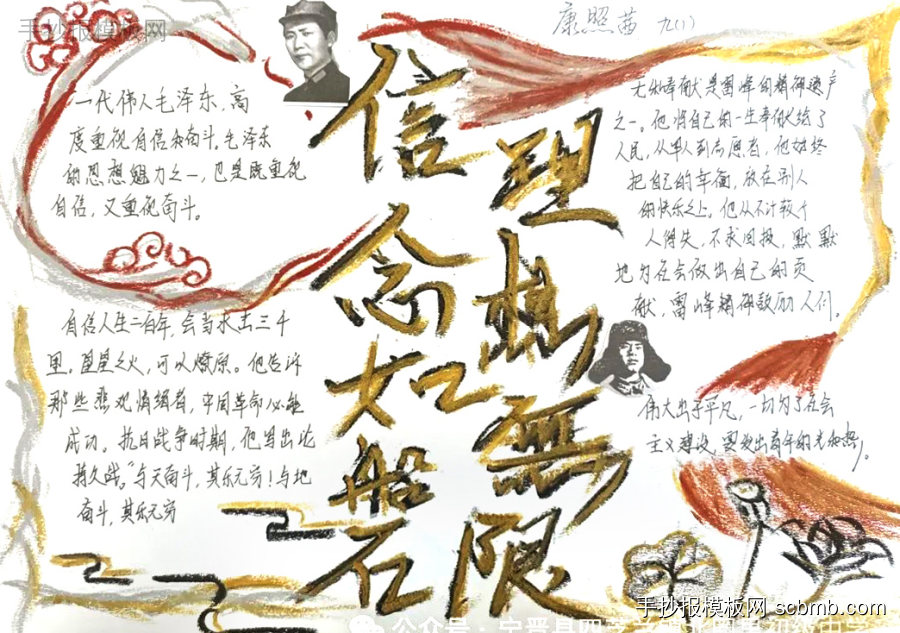 手抄报模板网
康照茜 九(1)
理想無限
信念如磐石
一代伟人毛泽东,高
度重视自信和奋斗。毛泽东
的思想魅力之一,也是既重视
自信,又重视奋斗。
自信人生二百年,会当水击三千
里。星星之火,可以燎原。他告诉
那些悲观情绪者,中国革命必能
成功。抗日战争时期,他写出论
持久战。"与天奋斗,其乐无穷!与地
奋斗,其乐无穷
无私奉献是雷峰的精神遗产
之一。他将自己的一生奉献给了
人民,从军人到志愿者,他始终
把自己的幸福,放在别人
的快乐之上。他从不计较个
人得失,不求回报,默默
地为社会做出自己的贡
献,雷峰精神鼓励人们。
伟大出于平凡,一切为了社会
主义建设,要发出青年的光和热。
手抄报模板网 scbmb.com
公众号:宁晋县四芝兰